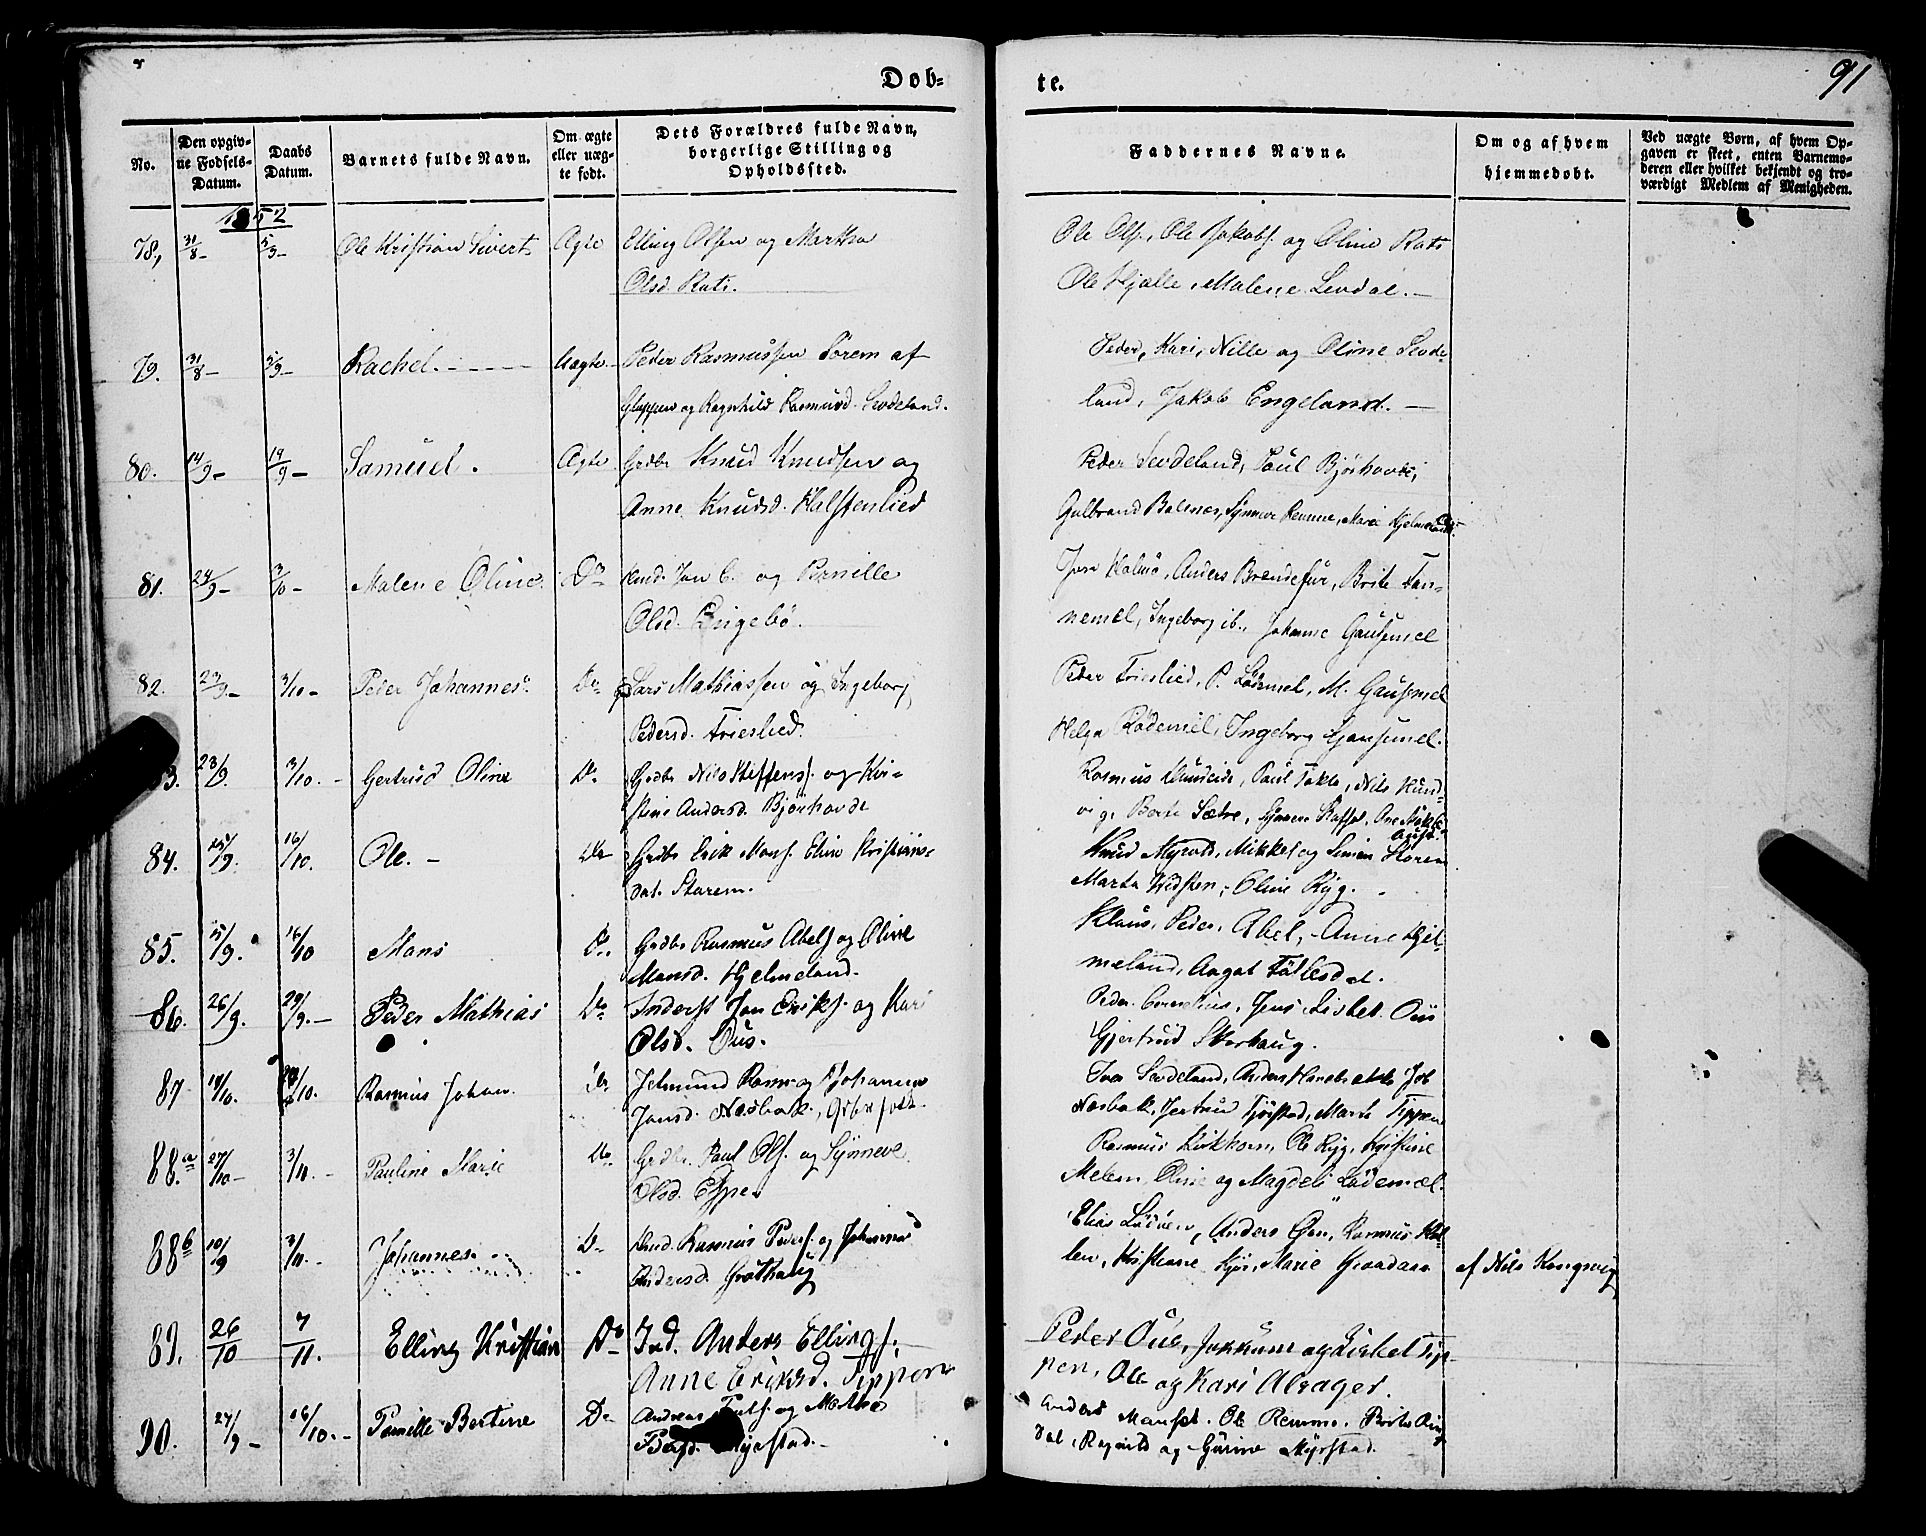 Døb-
te.
91
No.
Den opgiv-
ne Fødsels-
Datum.
Daabs
Datum.
Barnets fulde Navn.
Om ægte
eller uæg-
te født.
Dets Forældres fulde Navn,
borgerlige Stilling og
Opholdssted.
Faddernes Navne.
Om og af hvem
hjemmedøbt.
Ved uægte Børn, af hvem Op-
gaven er skeet, enten Barnemo-
deren eller hvilket bekjendt og tro-
værdigt Medlem af Menigheden.
1852
78, 31/8 - 5/9 - Ole Kristian Sivert Ægte Elling Olsen og Martha
Olsd. Rati.
Ole Ols., Ole Jakobs. og Oline Rati
Ole Hjalle, Malene Levdal. -
79. 31/8 - 5/9 - Rachel. - - - - Uægte Peder Rasmussen Sörem af
Gloppen og Ragnhild Rasmusd. Sevdeland.
Peder, Kari, Nille og Oline Sevde-
land, Jakob Engeland. -
80. 14/9 - 19/9 - Samuel. Ægte Grdbr Knud Knudsen og
Anne Knudsd. Halstenlied
Peder Sevdeland, Paul Björhovde,
Gulbrand Balenæs, Synneve Remme, Mari Hjelmeland.
81. 24/9 - 3/10 - Malene Oline. Do Hmd. Jon C. og Pernille
Olsd. Engebö.
Jon Malmö, Anders Brendefur, Brite Tan-
nemel, Ingeborg ib., Johanne Gausemel
82. 23/9 - 3/10 - Peder Johannes. Do Lars Mathiassen og Ingeborg
Pedersd. Frieslied.
Peder Frieslied, P. Lödemel, M. Gausemel
Helga Rödemel, Ingeborg Gausemel.
23/9. 3/10. - Gertrud Oline Do. Grdbr Nils Steffens. og Kri-
stine Andersd. Björhovde
Rasmus Paul Takle, Nils Kund-
vig, Berte Sætre,
84. 15/9. 16/10. Ole. - Do Grdbr Erik Mons. Eline Kristians-
dat. Storem.
Knud Myrvold, Mikkel og Simon Storem
Marta Widsten, Oline Ryg.
85. 15/9. 16/10 Mons Do. Grdbr Rasmus Abels. og Oline
Monsd. Hjelmeland.
Klaus, Peder, Abel, Anne Hjel-
meland, Aagat Tällesdal.
86. 26/9. 29/9. - Peder Mathias Do Inderst Jon Eriks. og Kari
Olsd. Ous.
Peder Cornelius, Jens, Lisbet Ous
Gjertrud Skorhaug.
87 14/10. /10. Rasmus Johan. Do Jetmund Rasm. og Johanne
Jonsd. Næsbak., Grbr
Iver Sevdeland, Anders
Næsbak, Jertrud Tjörstad, Marte Tippen
88.a 27/10 - 3/11. - Pauline Marie Do. Grdbr. Paul Ols. og Synneve
Olsd. Eppe.
Rasmus Kirkhorn, Ole Ryg, Kristine
Melem, Oline og Magdeli Lödemæl.
88b 10/9 3/11. Johannes. Do Hmd. Rasmus Peders. og Johanne
Andersd. Grothaug
Elias Anders Öen, Rasmus Hol-
len, Kristiane Marie af Nils Kongsvig
89. 26/10 7/11. Elling Kristian Do Ind. Anders Ellings.,
Anne Eriksd. Tippen
Peder Ous, Jakkum og Lisbet Tip-
pen, Ole og Kari Alsager.
90. 27/9 - 16/10. - Pernille Bertine Do Andreas og Marthe
Peders. Myrstad. -
Anders Monset. Ole Remme. Brite
dal, Ragnild og Gurine Myrstad.